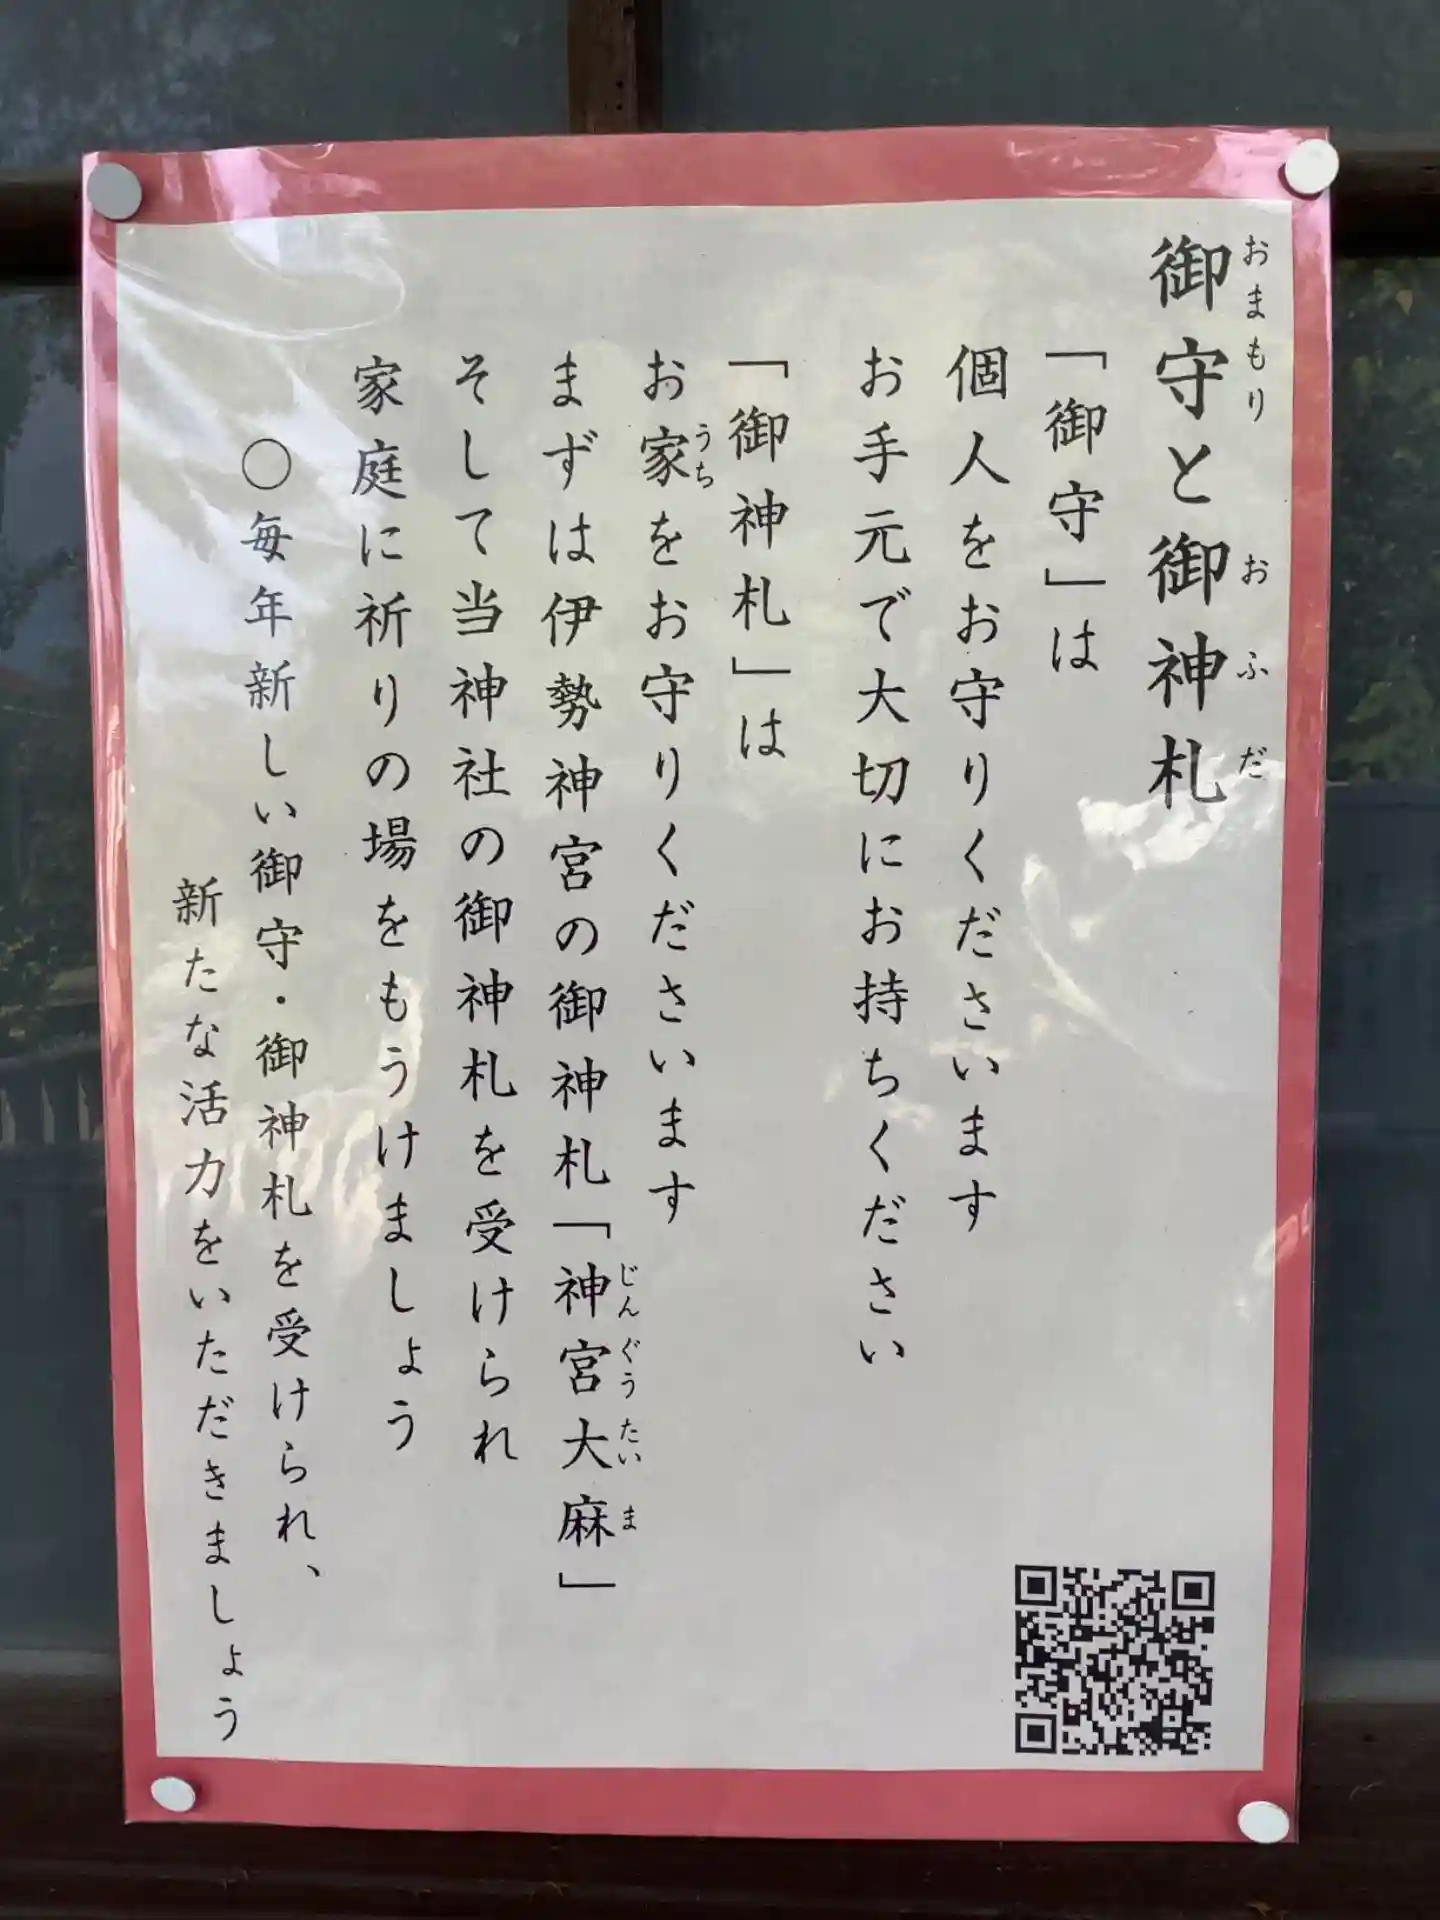 御守と御神札
おまもり おふだ
「御守」は
個人をお守りくださいます
お手元で大切にお持ちください
「御神札」は
お家をお守りくださいます
うち
まずは伊勢神宮の御神札「神宮大麻」
じんぐうたいま
そして当神社の御神札を受けられ
家庭に祈りの場をもうけましょう
〇毎年新しい御守・御神札を受けられ、
新たな活力をいただきましょう